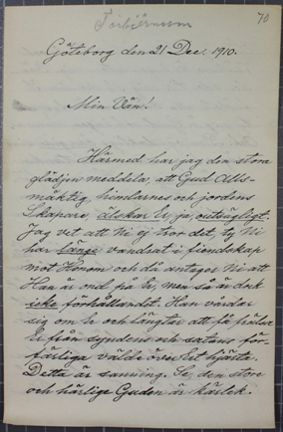 Torbiörnsson
70
Göteborg den 21 Dec. 1910.
Min Vän!
Härmed har jag den stora
glädjen meddela, att Gud Alls-
mäktig, himlarnes och jordens
Skapare, älskar Er, ja, outsägligt.
Jag vet att Ni ej tror det, ty Ni
har länge vandrat i fiendskap
mot Honom och då antager Ni att
Han är ond på Er, men så är dock
icke förhållandet. Han vårdar
sig om Er och längtar att få frälsa
Er från syndens och satans för-
färliga välde över Ert hjärta.
Detta är sanning. Se, den store
och härlige Guden är kärlek.